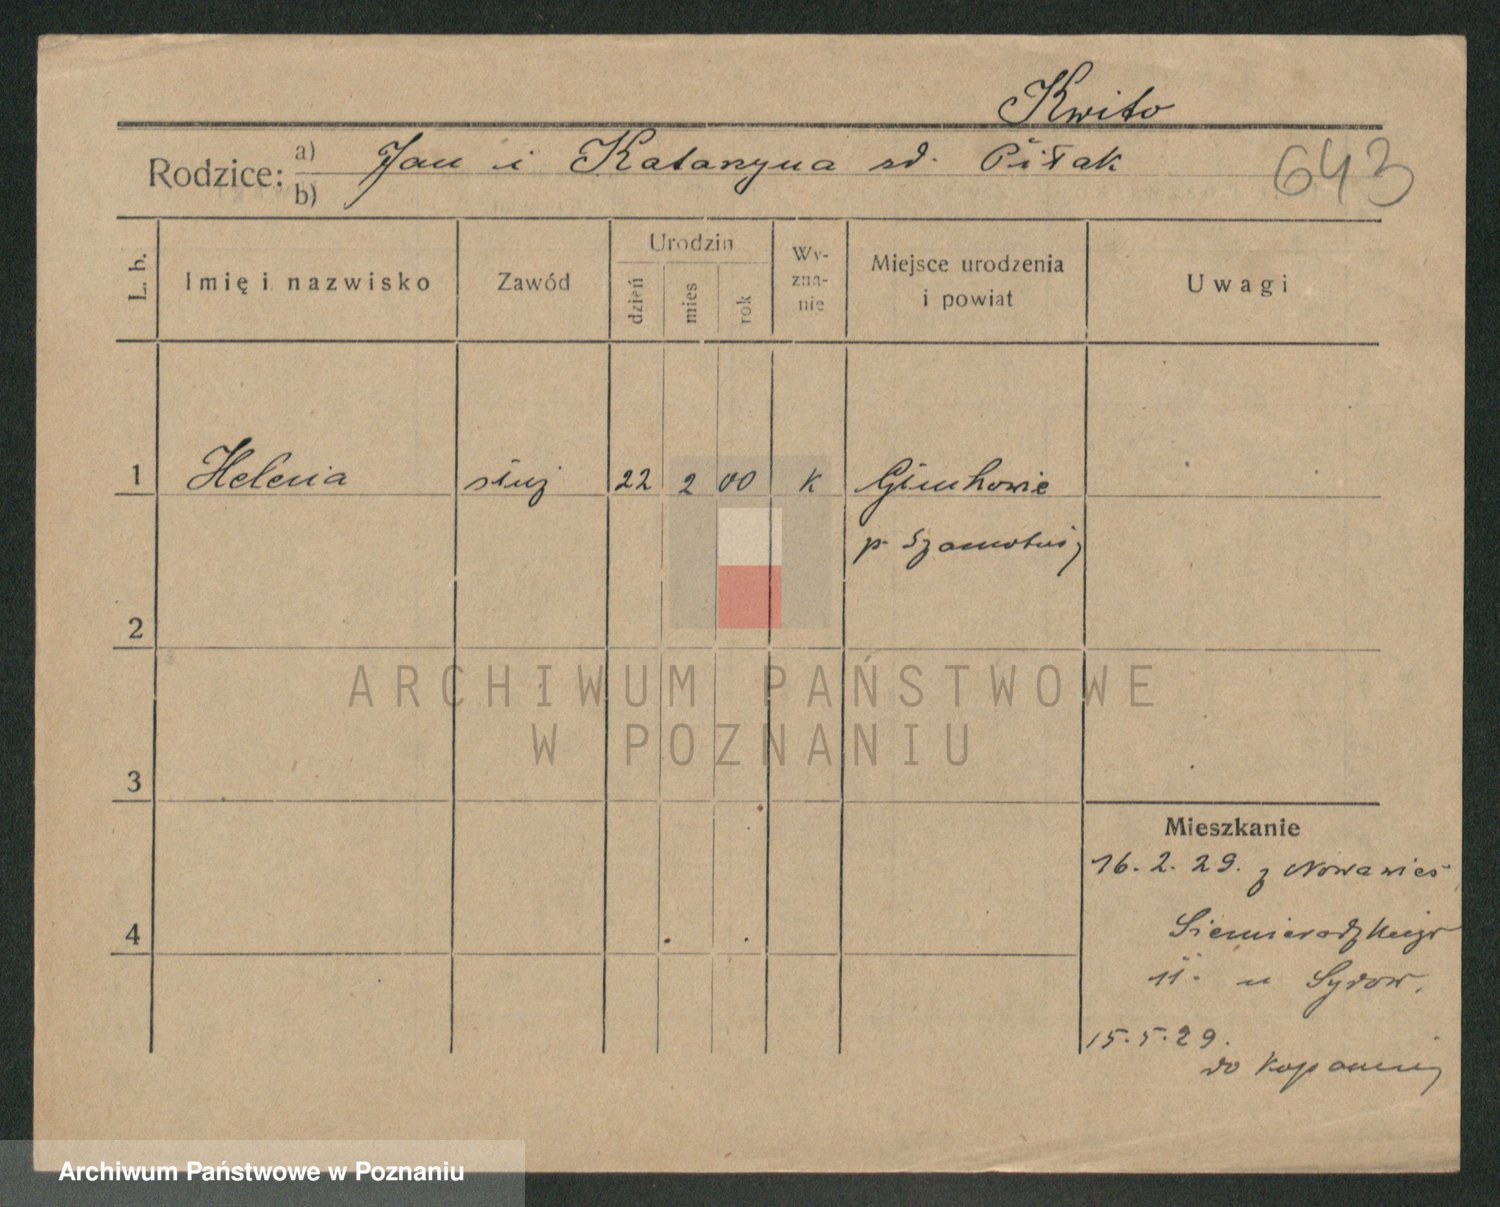 Kwito
Rodzice: a) Jan i Katarzyna zd. Piłak
b)
643
L. b. Imię i nazwisko Zawód Urodzin dzień mies rok Wy-zna-nie Miejsce urodzenia i powiat Uwagi
1 Helena służ 22 2 00 K
p. Szamotuły
2
3
4
Mieszkanie
16. 2. 29. z Nowawieś
Siemieradzkiego
11. u Sydow.
15. 5. 29.
do
ARCHIWUM PAŃSTWOWE
W POZNANIU
Archiwum Państwowe w Poznaniu